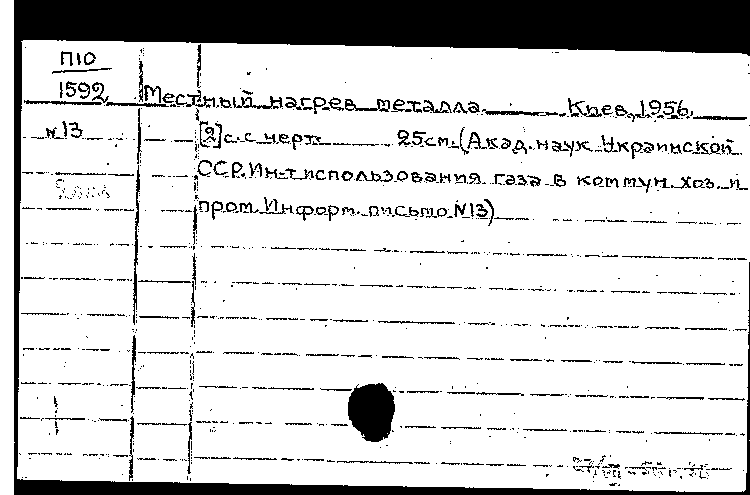 П10
1592 Местный нагрев металла. Киев, 1956.
№13 [2]с. с черт. 25см. (Акад. наук Украинской
ССР. Ин-т использования газа в коммун. хоз. и
пром. Информ. письмо №13)